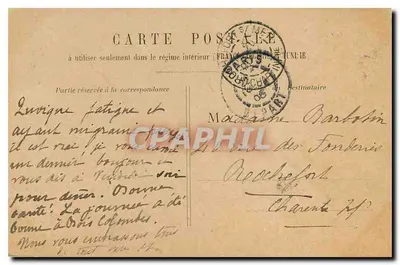 CARTE POSTALE
à utiliser seulement dans le régime intérieur FRANCE
Partie réservée à la correspondance
destinataire
Quoique fatigué et
ayant migraine
il est vrai, je vous
un dernier bonjour
vous dis à soir
pour dîner. Bonne
santé. La journée a été
bonne à Bois Colombes.
Nous vous embrassons tous
Madame Barbotin
des Fonderies
Rochefort
Charente Infre
PARIS
DEPART
CPAPHIL